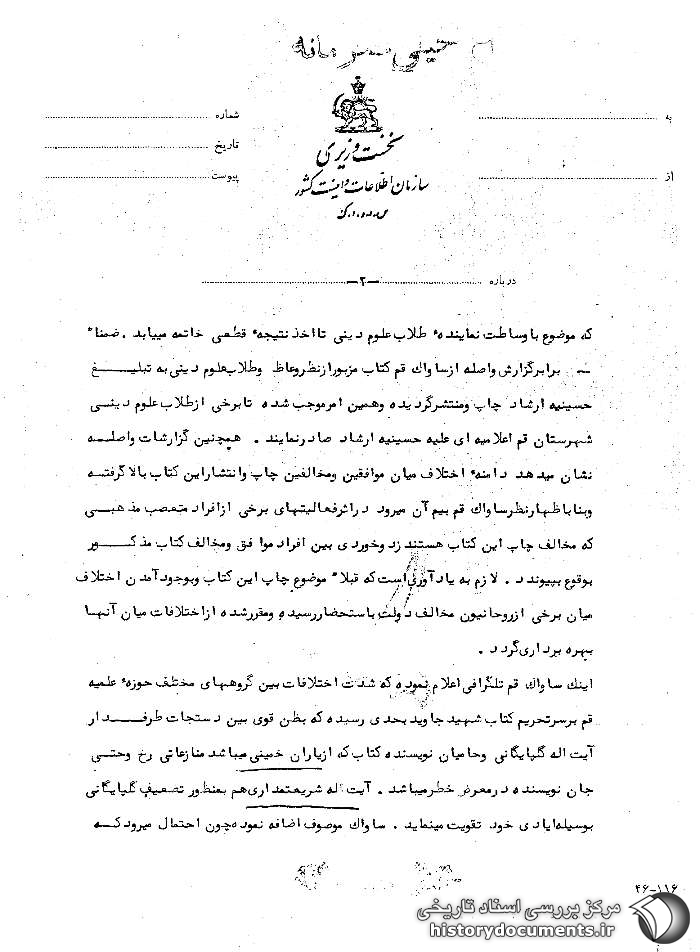 خیلی محرمانه
نخست وزیری
سازمان اطلاعات و امنیت کشور
س.ا.و.ا.ک
به
از
شماره
تاریخ
پیوست
درباره
-۲-
که موضوع با وساطت نماینده طلاب علوم دینی تا اخذ نتیجه قطعی خاتمه مییابد . ضمنا"
برابر گزارش واصله از ساواك قم کتاب مزبور از نظر وعاظ وطلاب علوم دینی به تبلیغ
حسینیه ارشاد چاپ ومنتشر گردیده وهمین امر موجب شده تا برخی از طلاب علوم دینی
شهرستان قم اعلامیه ای علیه حسینیه ارشاد صادر نمایند . همچنین گزارشات واصله
نشان میدهد دامنه اختلاف میان موافقین ومخالفین چاپ وانتشار این کتاب بالا گرفته
وبنا باظهار نظر ساواك قم بیم آن میرود در اثر فعالیتهای برخی از افراد متعصب مذهبی
که مخالف چاپ این کتاب هستند زد وخوردی بین افراد موافق ومخالف کتاب مذکور
بوقوع بپیوندد . لازم به یاد آوری است که قبلا" موضوع چاپ این کتاب وبوجود آمدن اختلاف
میان برخی از روحانیون مخالف دولت باستحضار رسیده ومقرر شده از اختلافات میان آنها
بهره برداری گردد .
اینك ساواك قم تلگرافی اعلام نموده که شدت اختلافات بین گروههای مختلف حوزه علمیه
قم بر سر تحریم کتاب شهید جاوید بحدی رسیده که بظن قوی بین دستجات طرفدار
آیت اله گلپایگانی وحامیان نویسنده کتاب که از یاران خمینی میباشد منازعاتی رخ وحتی
جان نویسنده در معرض خطر میباشد . آیت اله شریعتمداری هم بمنظور تضعیف گلپایگانی
بوسیله ایادی خود تقویت مینماید . ساواك موصوف اضافه نموده چون احتمال میرود که
۴۶-۱۱۶
مرکز بررسی اسناد تاریخی
historydocuments.ir